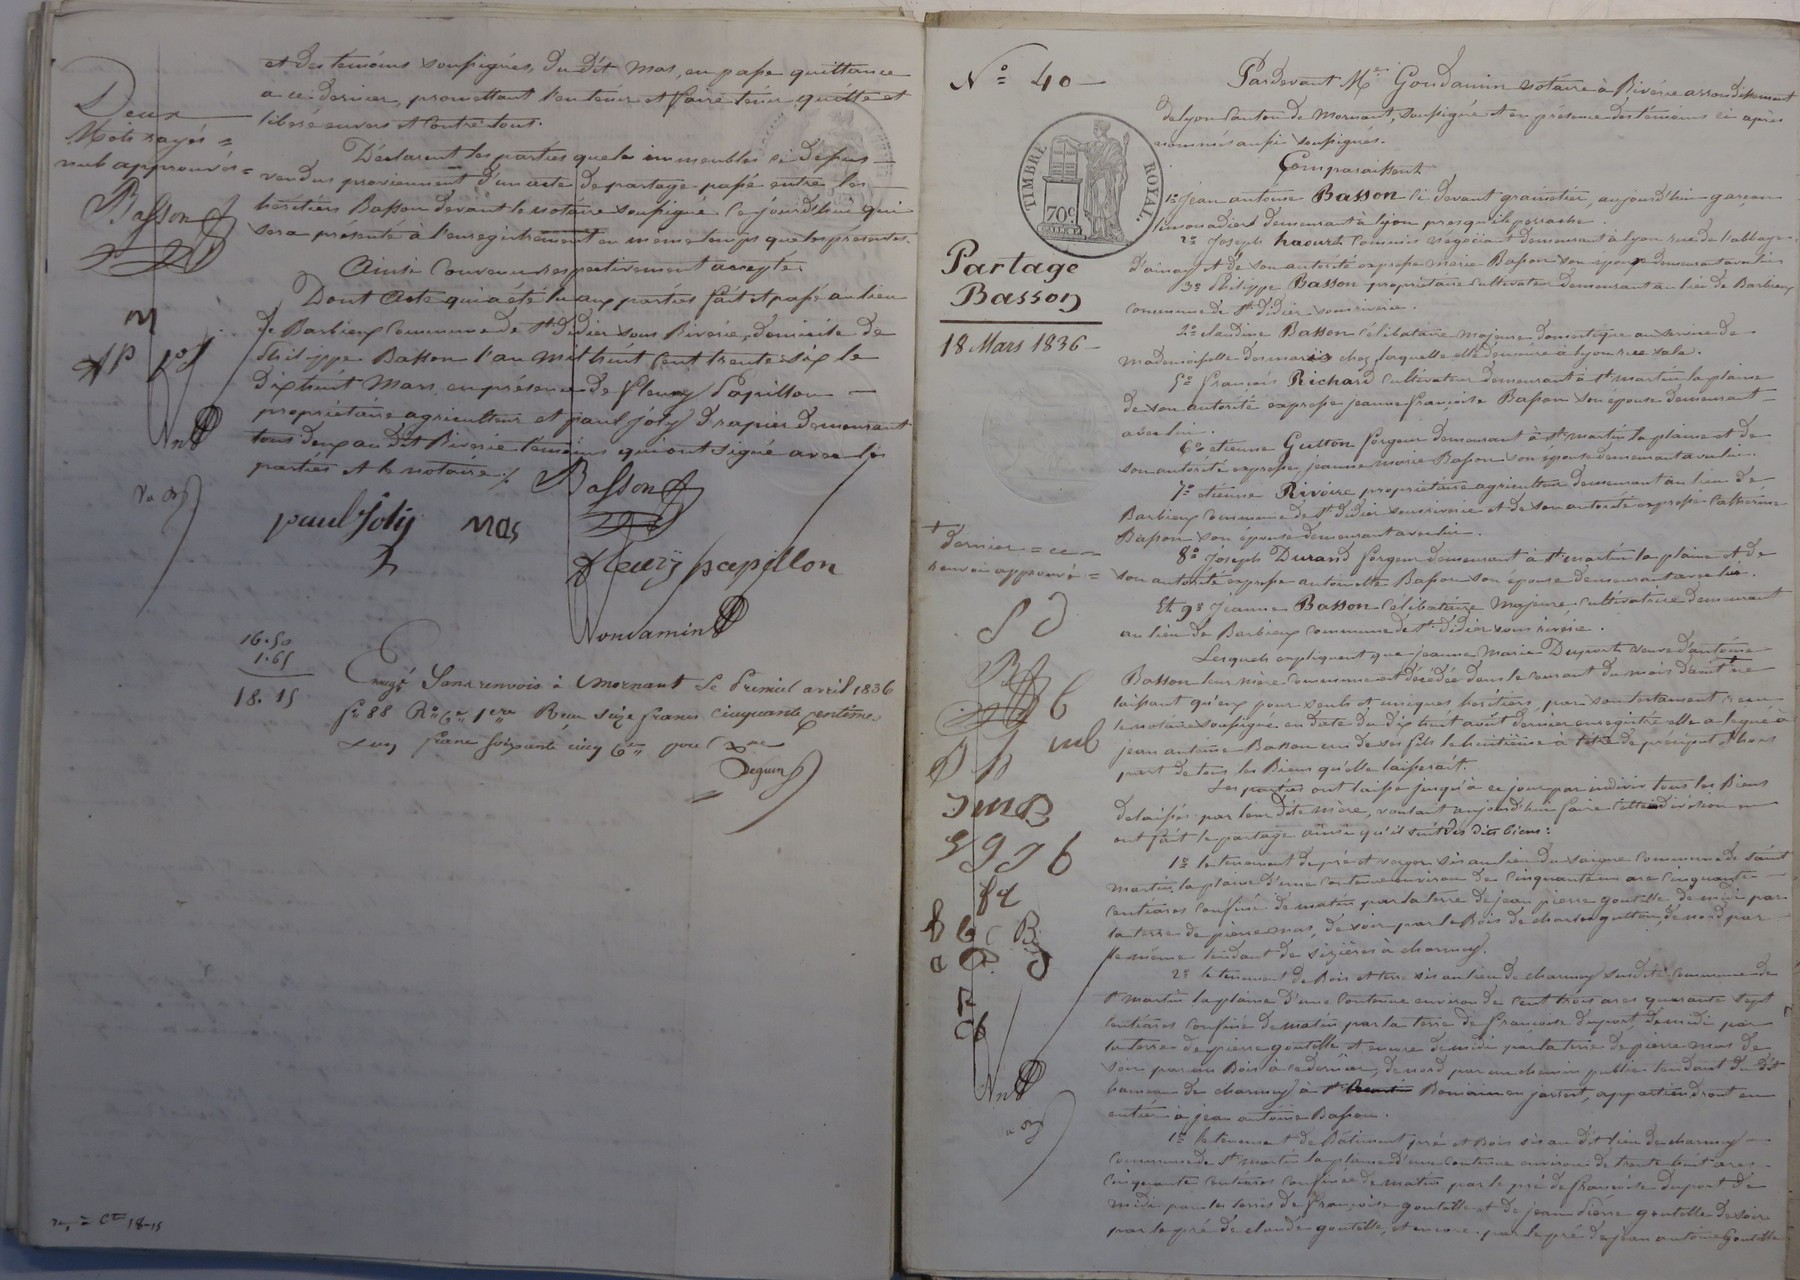 et des témoins soussignés, du dit Mas, en passe quittance
a ce dernier, promettant l'en tenir et faire tenir quitte et
libéré envers et contre tout.
Déclarent les parties que les immeubles ci dessus
vendus proviennent d'un acte de partage passé entre les
héritiers Basson devant le notaire soussigné ce jourd'hui qui
sera présenté à l'enregistrement en meme temps que les présentes.
Ainsi Convenu respectivement accepté.
Dont Acte qui a été lu aux parties fait et passé au lieu
de Barbieux Commune de St Didier sous Riverie, domicile de
Philippe Basson l'an Mil huit Cent trente six le
Dix huit Mars en présence de fleury Papillon
propriétaire agriculteur et paul joly Drapier demeurant
tous deux au dit Riverie témoins qui ont signé avec les
parties et le notaire ./.
Deux
Mots rayés =
nuls approuvés =
Basson
M
fp pj
Basson
paul Joly mas
fleury papillon
Gondamin
16.50
1.65
18.15
Enregé Sans renvois à Mornant Le Premier avril 1836
fo 88 Ro Ce 1ere Reçu Seize francs Cinquante centimes
& un franc soixante cinq Ces pour Dme
= Cte 18-15
No = 40 -
TIMBRE ROYAL.
70c.
Partage
Basson
18 Mars 1836 -
Pardevant Me Gondamin notaire à Riverie arrondissement
de Lyon Canton de Mornant, soussigné et en présence des témoins ci après
nommés aussi soussignés.
Comparaissent
1o jean antoine Basson ci devant grainetier, aujourd'hui garçon
limonadier demeurant à lyon presqu'ile perrache.
2o Joseph haour Commis négociant demeurant à lyon rue de l'abbaye
d'ainay et de son autorité expresse marie Basson son epouse demeurant avec lui
3o Philippe Basson propriétaire Cultivateur demeurant au lieu de Barbieux
commune de St didier sous riverie.
4o claudine Basson Célibataire majeure domestique au service de
mademoiselle desmaris chez laquelle elle demeure à lyon rue sala.
5o françois Richard Cultivateur demeurant à st martin la plaine
de son autorité expresse jeanne françoise Basson son epouse demeurant
avec lui.
6o etienne Gutton forgeur demeurant à st martin la plaine et de
son autorité expresse jeanne marie Basson son épouse demeurant avec lui.
7o etienne Rivoire propriétaire agriculteur demeurant au lieu de
Barbieux Commune de St didier sous riverie et de son autorité expresse Catherine
Basson son épouse demeurant avec lui.
8o Joseph Durand forgeur demeurant à st martin la plaine et de
son autorité expresse antoinette Basson son épouse demeurant avec lui.
Et 9o Jeanne Basson Célibataire Majeure Cultivatrice demeurant
au lieu de Barbieux Commune de St didier sous riverie.
Lesquels expliquent que jeanne Marie Duport veuve d'antoine
Basson leur mère Commune est décédée dans le courant du mois d'aout + ne
laissant qu'eux pour seuls et uniques héritiers, par son testament reçu
le notaire soussigné en date du dix huit août dernier enregistré elle a légué à
jean antoine Basson un de ses fils le huitième à titre de préciput et hors
part de tous les Biens qu'elle laisserait.
Les parties ont laissé jusqu'à ce jour par indivis tous les Biens
delaissés par leur dite mère, voulant aujourd'hui faire cette division en
ont fait le partage ainsi qu'il suit des dits biens:
1o le tenement de pré et verger sis au lieu du saigne Commune de Saint
Martin la plaine d'une Contenue environ de Cinquante un are Cinquante
Centiares Confiné de matin par la terre de jean pierre goutelle, de midi par
la terre de pierre mas, de soir par le Bois de charles gutton, de nord par
tendant de à charmoy.
2o le tenement de Bois et terre sis au lieu de charmoy susdite Commune de
st martin la plaine d'une Contenue environ de Cent trois ares quarante sept
Centiares Confiné de matin par la terre de françoise duport de midi par
la terre de pierre goutelle et encore de midi par la terre de pierre mas de
soir par un Bois à ce dernier, de nord par un chemin public tendant du dit
hameau de charmoy à st Romain en jarrest, appartiendront en
entier à jean antoine Basson.
1o le tenement de Bâtiment pré et Bois sis au dit lieu de charmoy
Commune de St martin la plaine d'une Contenue environ de trente huit ares
Cinquante Centiares Confiné de matin par le pré de françoise duport de
midi par les terres de françoise goutelle et de jean Pierre goutelle de soir
par le pré de claude goutelle, et encore par le pré de jean antoine Goutelle
+
dernier = ce
renvoi approuvé =
J D
B
b
mb
J h
J M B